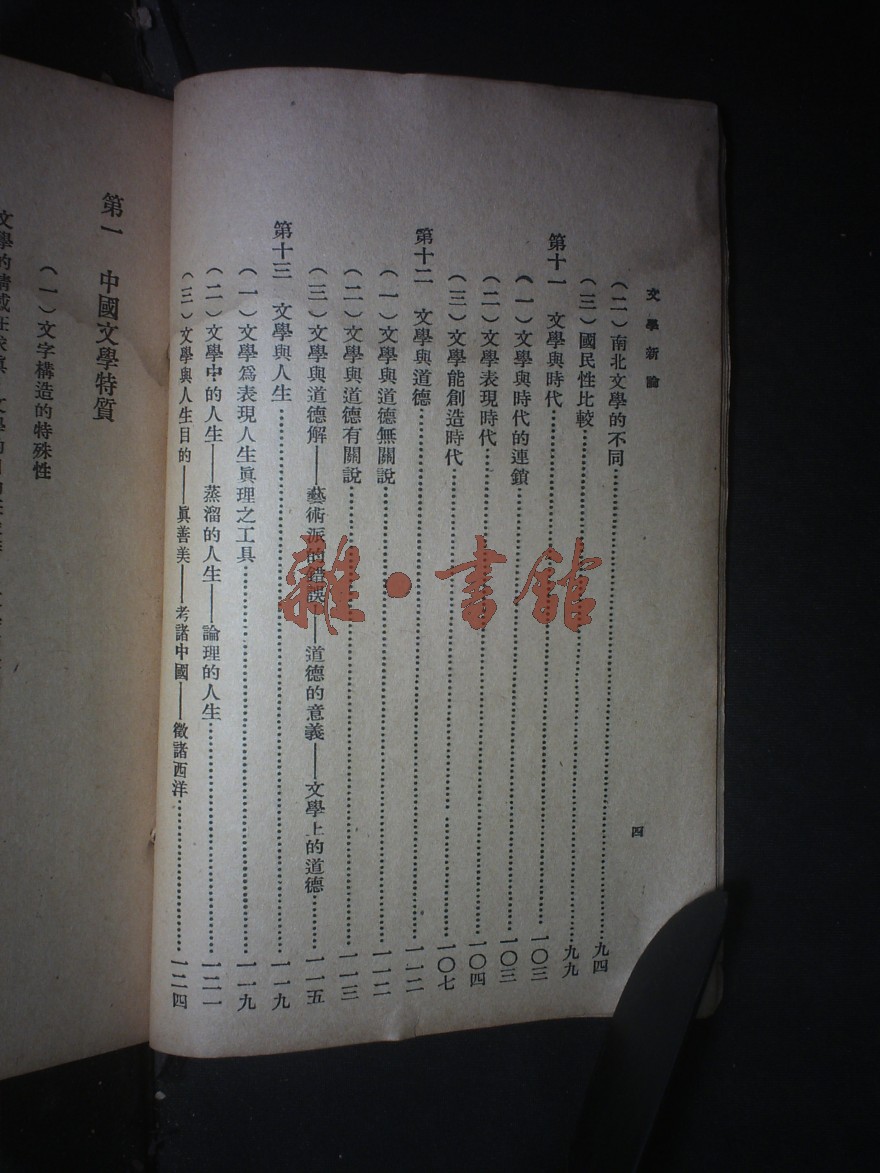 文學新論
四
（二）南北文學的不同……九四
（三）國民性比較……九九
第十一　文學與時代……一〇三
（一）文學與時代的連鎖……一〇三
（二）文學表現時代……一〇四
（三）文學能創造時代……一〇七
第十二　文學與道德……一一二
（一）文學與道德無關說……一一二
（二）文學與道德有關說……一一三
（三）文學與道德解——藝術派的錯誤——道德的意義——文學上的道德……一一五
第十三　文學與人生……一一九
（一）文學爲表現人生眞理之工具……一一九
（二）文學中的人生——蒸溜的人生——論理的人生……一二一
（三）文學與人生目的——眞善美——考諸中國——徵諸西洋……一二四
第一　中國文學特質
（一）文字構造的特殊性
雜·書館